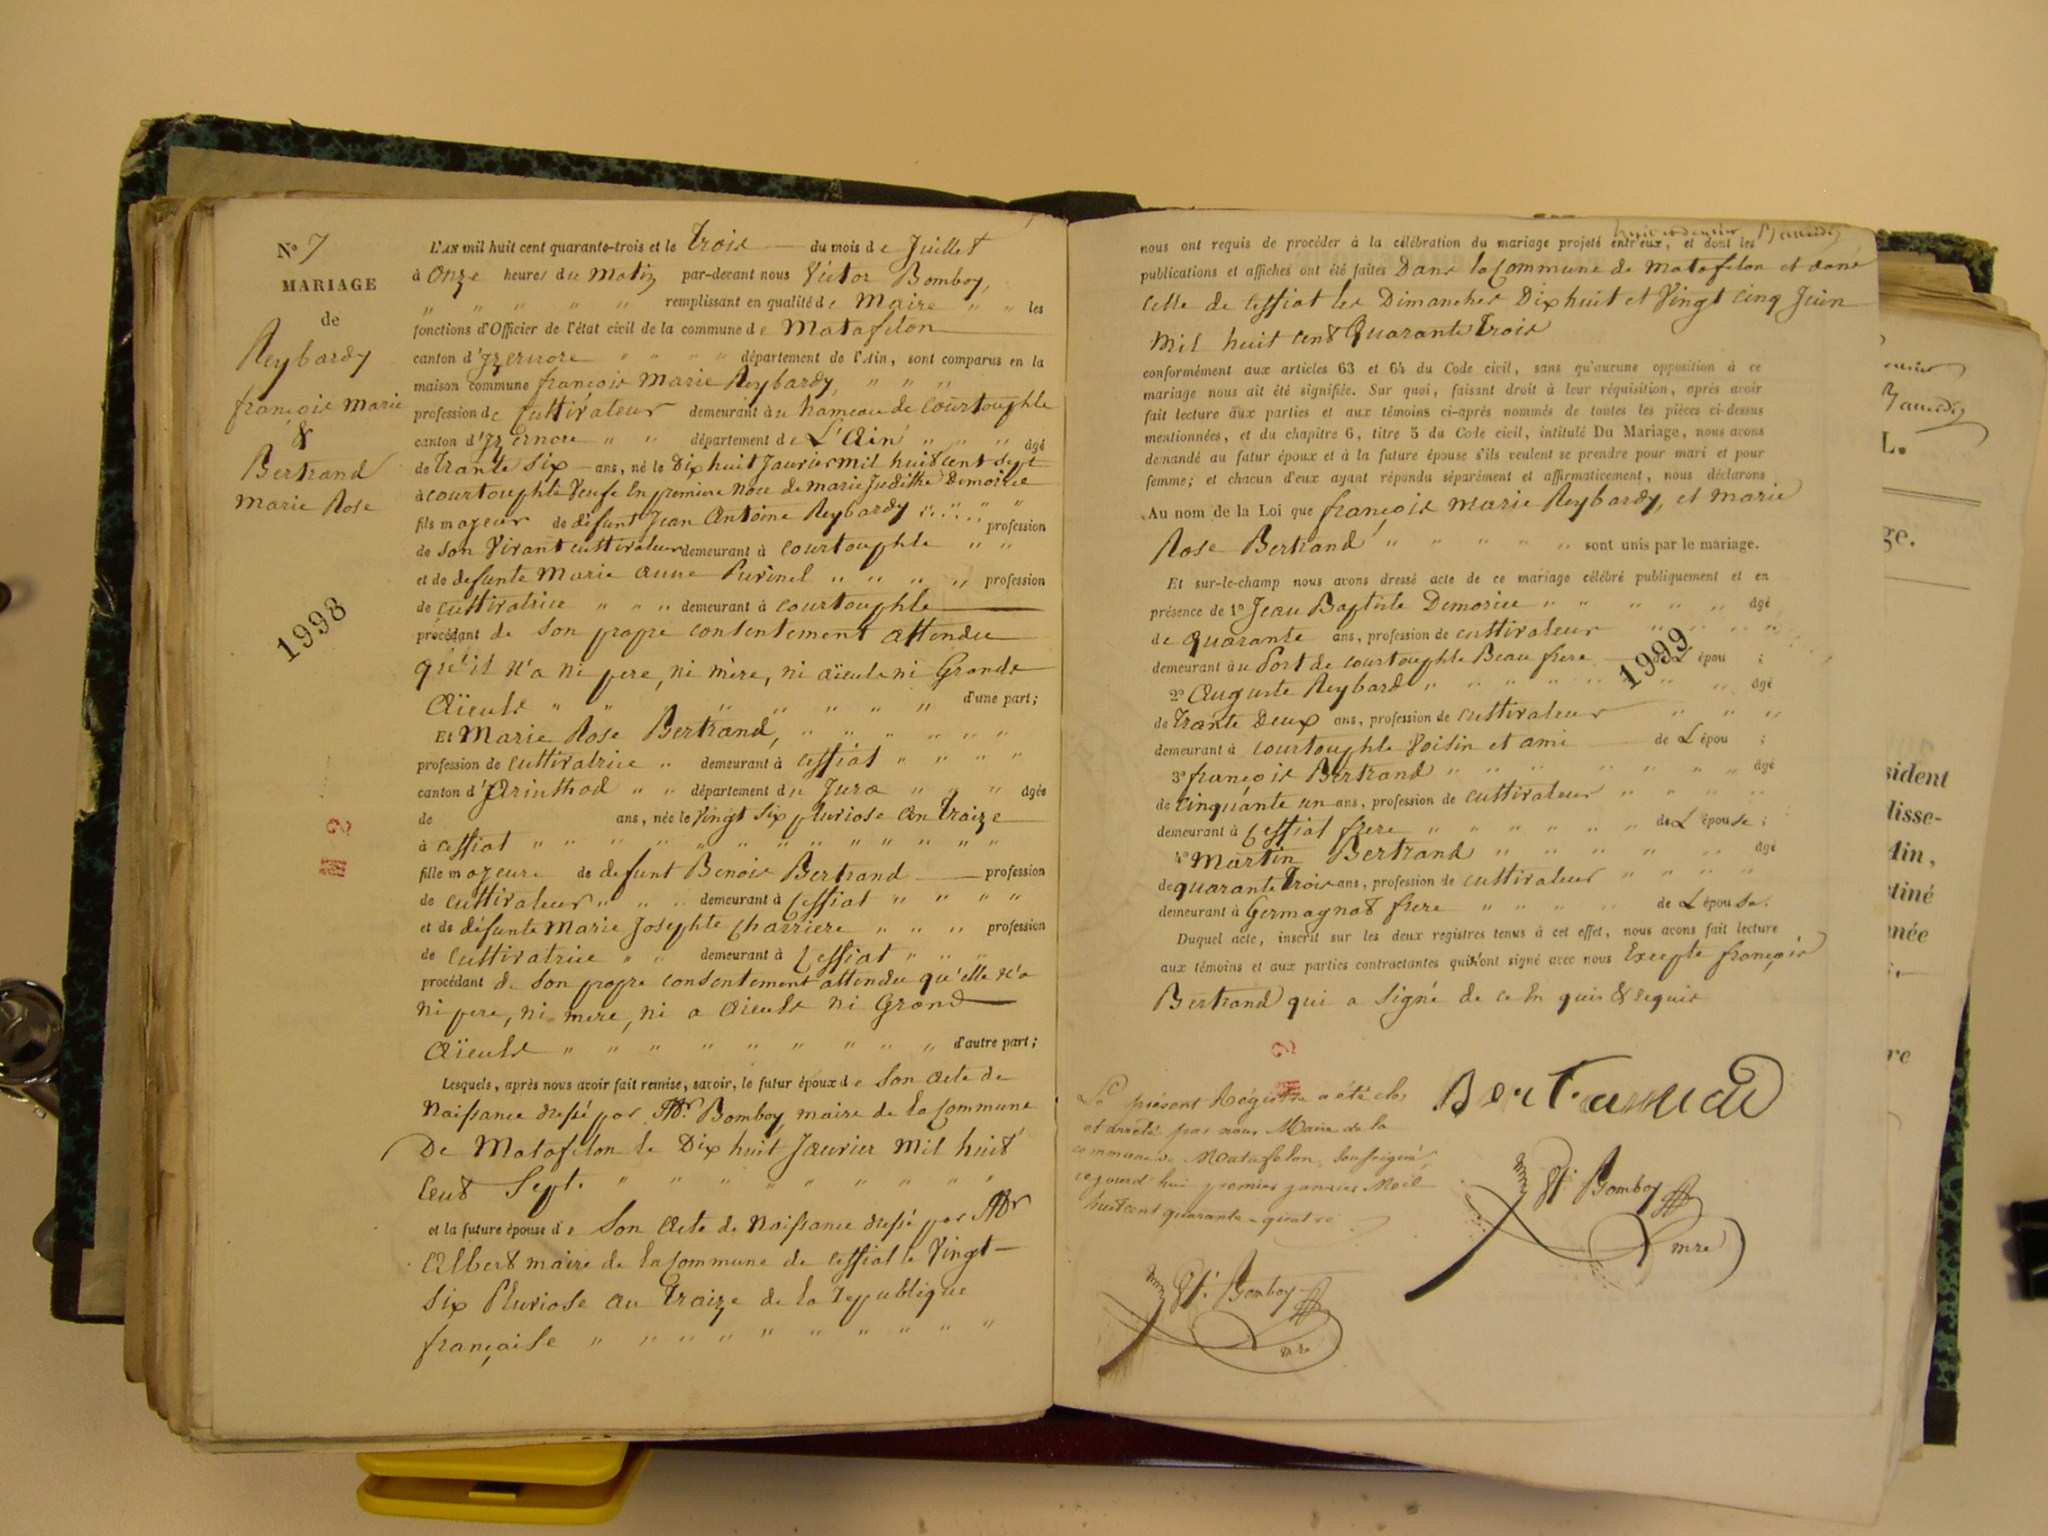 N° 7
MARIAGE
de
Reybardy
françois marie
&
Bertrand
marie Rose
1998
L'AN mil huit cent quarante-trois et le trois du mois de Juillet
à Onze heures du Matin par-devant nous Victor Bomboy,
" " " " " remplissant en qualité de Maire " " les
fonctions d'Officier de l'état civil de la commune de Matafelon
canton d'Izernore " " " " département de l'Ain, sont comparus en la
maison commune françois Marie Reybardy, " " "
profession de Cultivateur demeurant au hameau de Courtouphle
canton d'Izernore " " département de L'Ain " " " âgé
de trante Six ans, né le Dix huit Janvier mil huit cent Sept
à courtouphle Veufe En premiere noce de marie Judithe Demorice
fils majeur de défunt Jean Antoine Reybardy " " " "
profession
de Son Vivant cultivateur demeurant à Courtouphle " "
et de defunte Marie anne Purinel " " " " profession
de cultivatrice " " " demeurant à Courtouphle
procédant de Son propre consentement attendu
qu'il n'a ni pere, ni mère, ni aïeuls ni Grands
Aïeuls " " " " " " " d'une part;
Et Marie Rose Bertrand, " " " " " "
profession de cultivatrice " demeurant à Cessiat " " " "
canton d'Arinthod " " département du Jura " " " âgée
de ans, née le Vingt Six pluviose an traize
à cessiat " " " " " " " " " " " " "
fille majeure de defunt Benois Bertrand profession
de cultivateur " " " demeurant à Cessiat " " " "
et de défunte Marie Josephte Charriere " " " profession
de Cultivatrice " " demeurant à Cessiat " " "
procédant de Son propre consentement attendu qu'elle n'a
ni pere, ni mere, ni a aieuls ni Grand
Aïeuls " " " " " " " " " d'autre part;
Lesquels, après nous avoir fait remise, savoir, le futur époux de Son acte de
Naissance dressé par Mr Bomboy maire de la Commune
De Matafelon le Dix huit Janvier Mil huit
Cent Sept. " " " " " " " " "
et la future épouse de Son acte de Naissance dressé par Mr
Albert maire de la Commune de cessiat le Vingt
Six Pluviose an Traize de la republique
française " " " " " " " " " "
nous ont requis de procéder à la célébration du mariage projeté entr'eux, et dont les
publications et affiches ont été faites Dans la Commune de Matafelon et dans
celle de Cessiat les Dimanches Dix huit et Vingt Cinq Juin
Mil huit cent Quarante Trois
conformément aux articles 63 et 64 du Code civil, sans qu'aucune opposition à ce
mariage nous ait été signifiée. Sur quoi, faisant droit à leur réquisition, après avoir
fait lecture aux parties et aux témoins ci-après nommés de toutes les pièces ci-dessus
mentionnées, et du chapitre 6, titre 5 du Code civil, intitulé Du Mariage, nous avons
demandé au futur époux et à la future épouse s'ils veulent se prendre pour mari et pour
femme; et chacun d'eux ayant répondu séparément et affirmativement, nous déclarons
Au nom de la Loi que françois marie Reybardy, et marie
Rose Bertrand " " " " " sont unis par le mariage.
Et sur-le-champ nous avons dressé acte de ce mariage célébré publiquement et en
présence de 1° Jean Baptiste Demorice " " " " " âgé
de quarante ans, profession de cultivateur " " " "
demeurant au Port de courtouphle Beau frere de L'épou ;
1999
2° Auguste Reybard " " " " " " " âgé
de trante Deux ans, profession de cultivateur " " "
demeurant à courtouphle Voisin et ami de L'épou ;
3° françois Bertrand " " " " " " " âgé
de cinquante un ans, profession de cultivateur " " " "
demeurant à Cessiat frere " " " " " " de L'épouse ;
4° Martin Bertrand " " " " " âgé
de quarante trois ans, profession de cultivateur " " " "
demeurant à Germagnat frere " " " " de L'épouse.
Duquel acte, inscrit sur les deux registres tenus à cet effet, nous avons fait lecture
aux témoins et aux parties contractantes qui n'ont signé avec nous Excepte françois
Bertrand qui a Signé de ce En quis & requis
Bertrand
Le présent Régistre a été clos
et arrêté par nous Maire de la
commune de Matafelon, Soussigné,
cejourd'hui premier janvier Mil
huit cent quarante-quatre
Vt. Bomboy
mre
Vt. Bomboy
mre
L.
ge.
sident
lisse-
Ain,
tiné
née
re